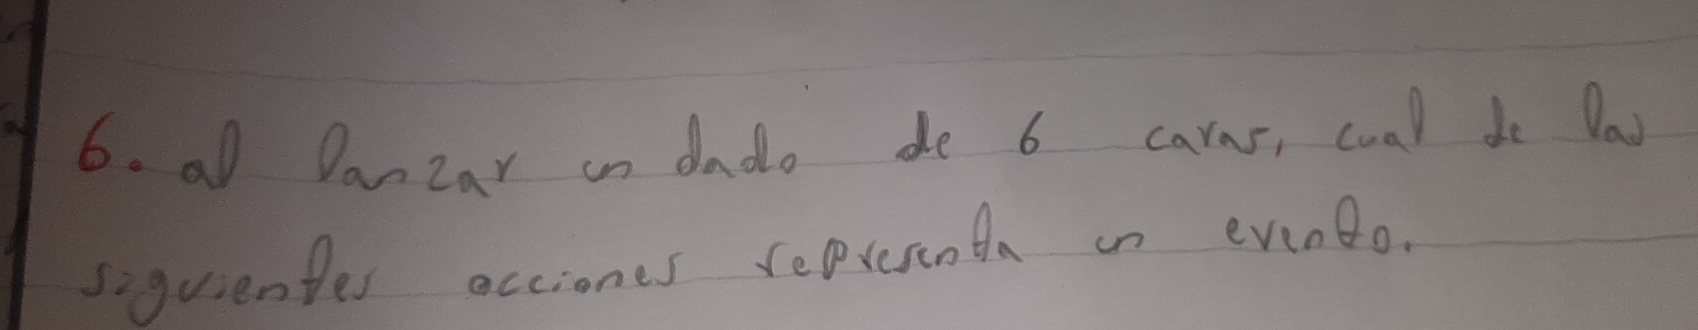 6. al lanzar un dado de 6 caras, cual de las
siguientes acciones representa un evento.